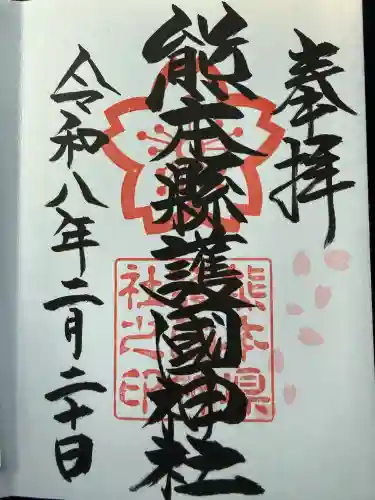 奉拝
熊本縣護國神社
令和八年二月二十日
熊本県護国神社之印